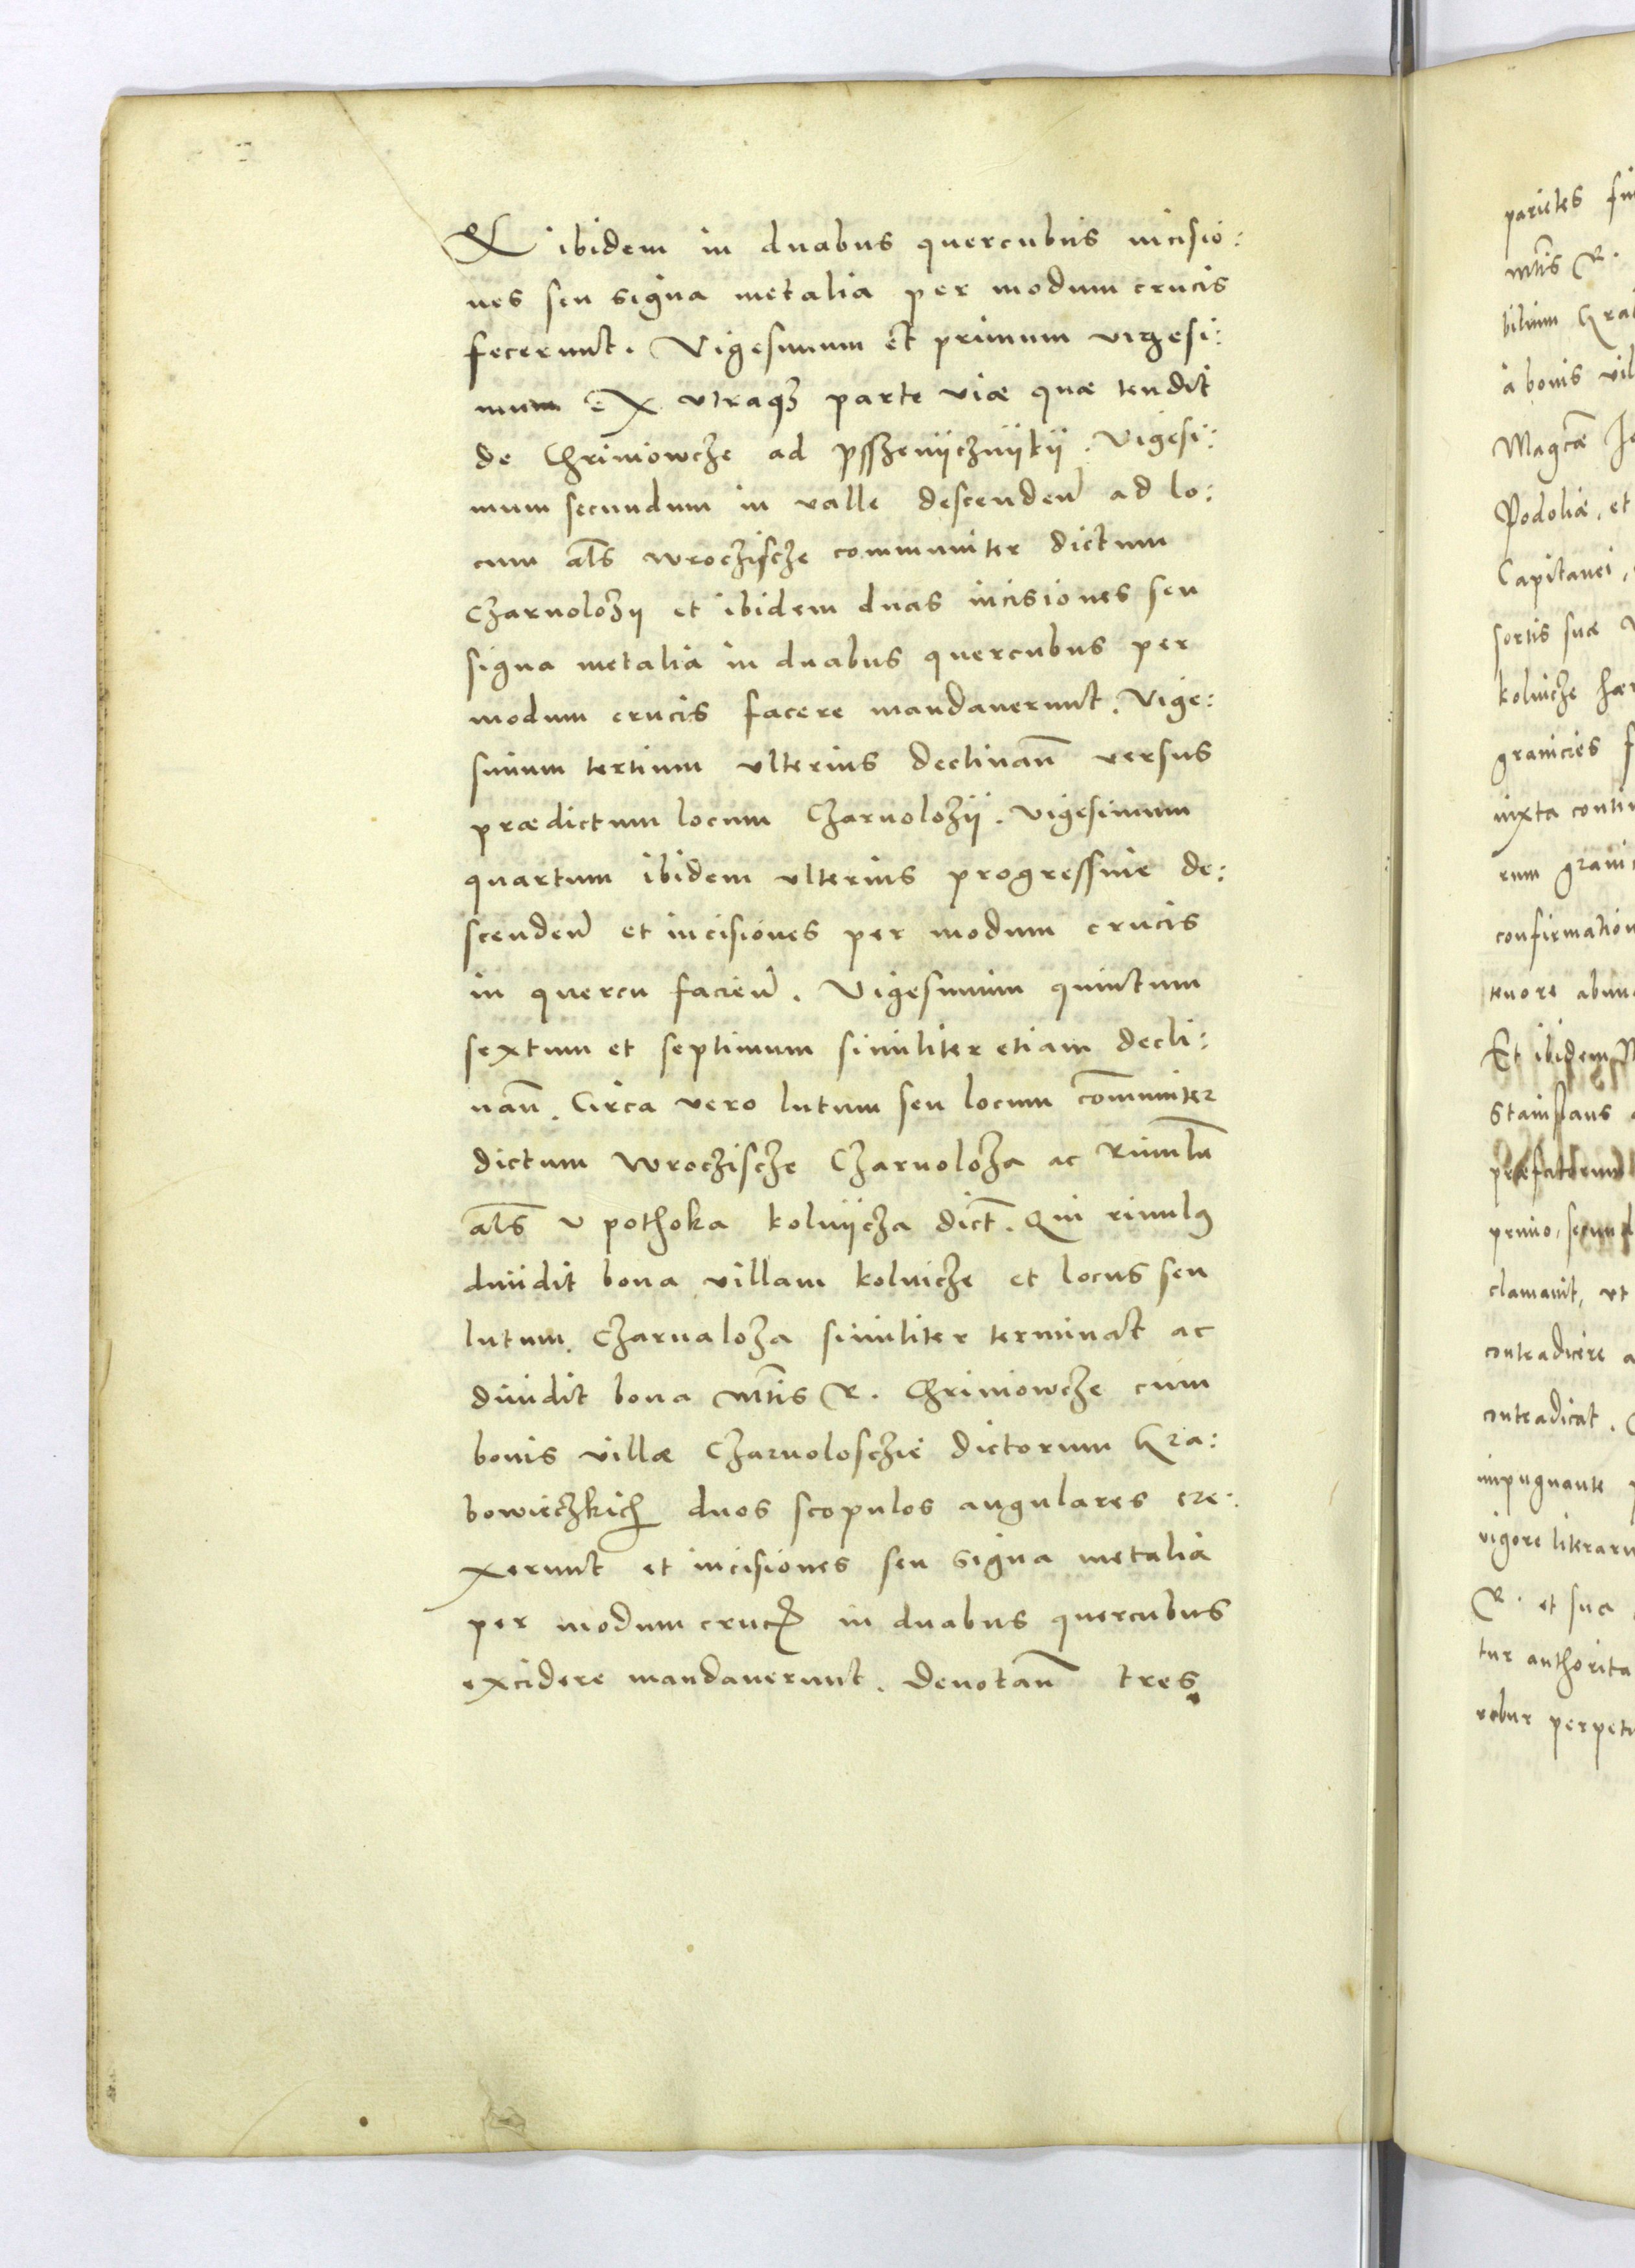 Et ibidem in duabus quercubus incisio:
nes seu signa metalia per modum crucis
fecerunt. Vigesimum et primum vigesi:
mum ex utraqꝫ parte viæ quæ tendit
de Chriniowcze ad Psszeniicznikii. Vigesi:
mum secundum in valle descendeñ ad lo:
cum als wrocziscze communiter dictum
Czarnolozii et ibidem duas incisiones seu
signa metalia in duabus quercubus per
modum crucis facere mandauerunt. Vige:
simum tertium vlterius declinañ versus
prædictum locum Czarnolozii. Vigesimum
quartum ibidem vlterius progressiue de:
scendeñ et incisiones per modum crucis
in quercu facieñ. Vigesimum quintum
sextum et septimum similiter etiam decli:
nañ. Circa vero lutum seu locum com̃uniter
dictum wrocziscze Czarnoloza ac Riuulũ
als v pothoka kolniicza dict. Qui riuulꝰ
diuidit bona villam kolnicze et locus seu
lutum Czarnaloza similiter terminat ac
diuidit bona Mtis R. Chriniowcze cum
bonis villæ Czarnoloscziė dictorum Gra:
bowieczkich duos scopulos angulares ere:
xerunt et incisiones seu signa metalia
per modum crucis in duabus quercubus
excidere mandauerunt. Denotañ tres
parietes
Mtis R.
bilium
à bonis
Mag̃cæ
Podoliæ, et
Capitanei,
sortis suæ
kolnicze
granicies
iuxta
rum
confirmation
tenore
Et ibidem
Stanislaus
præfatorum
primo,
clamauit, vt
contradicere
contradicat.
impugnante
vigore literaru
R. et sua
tur authorita
robur perpetu